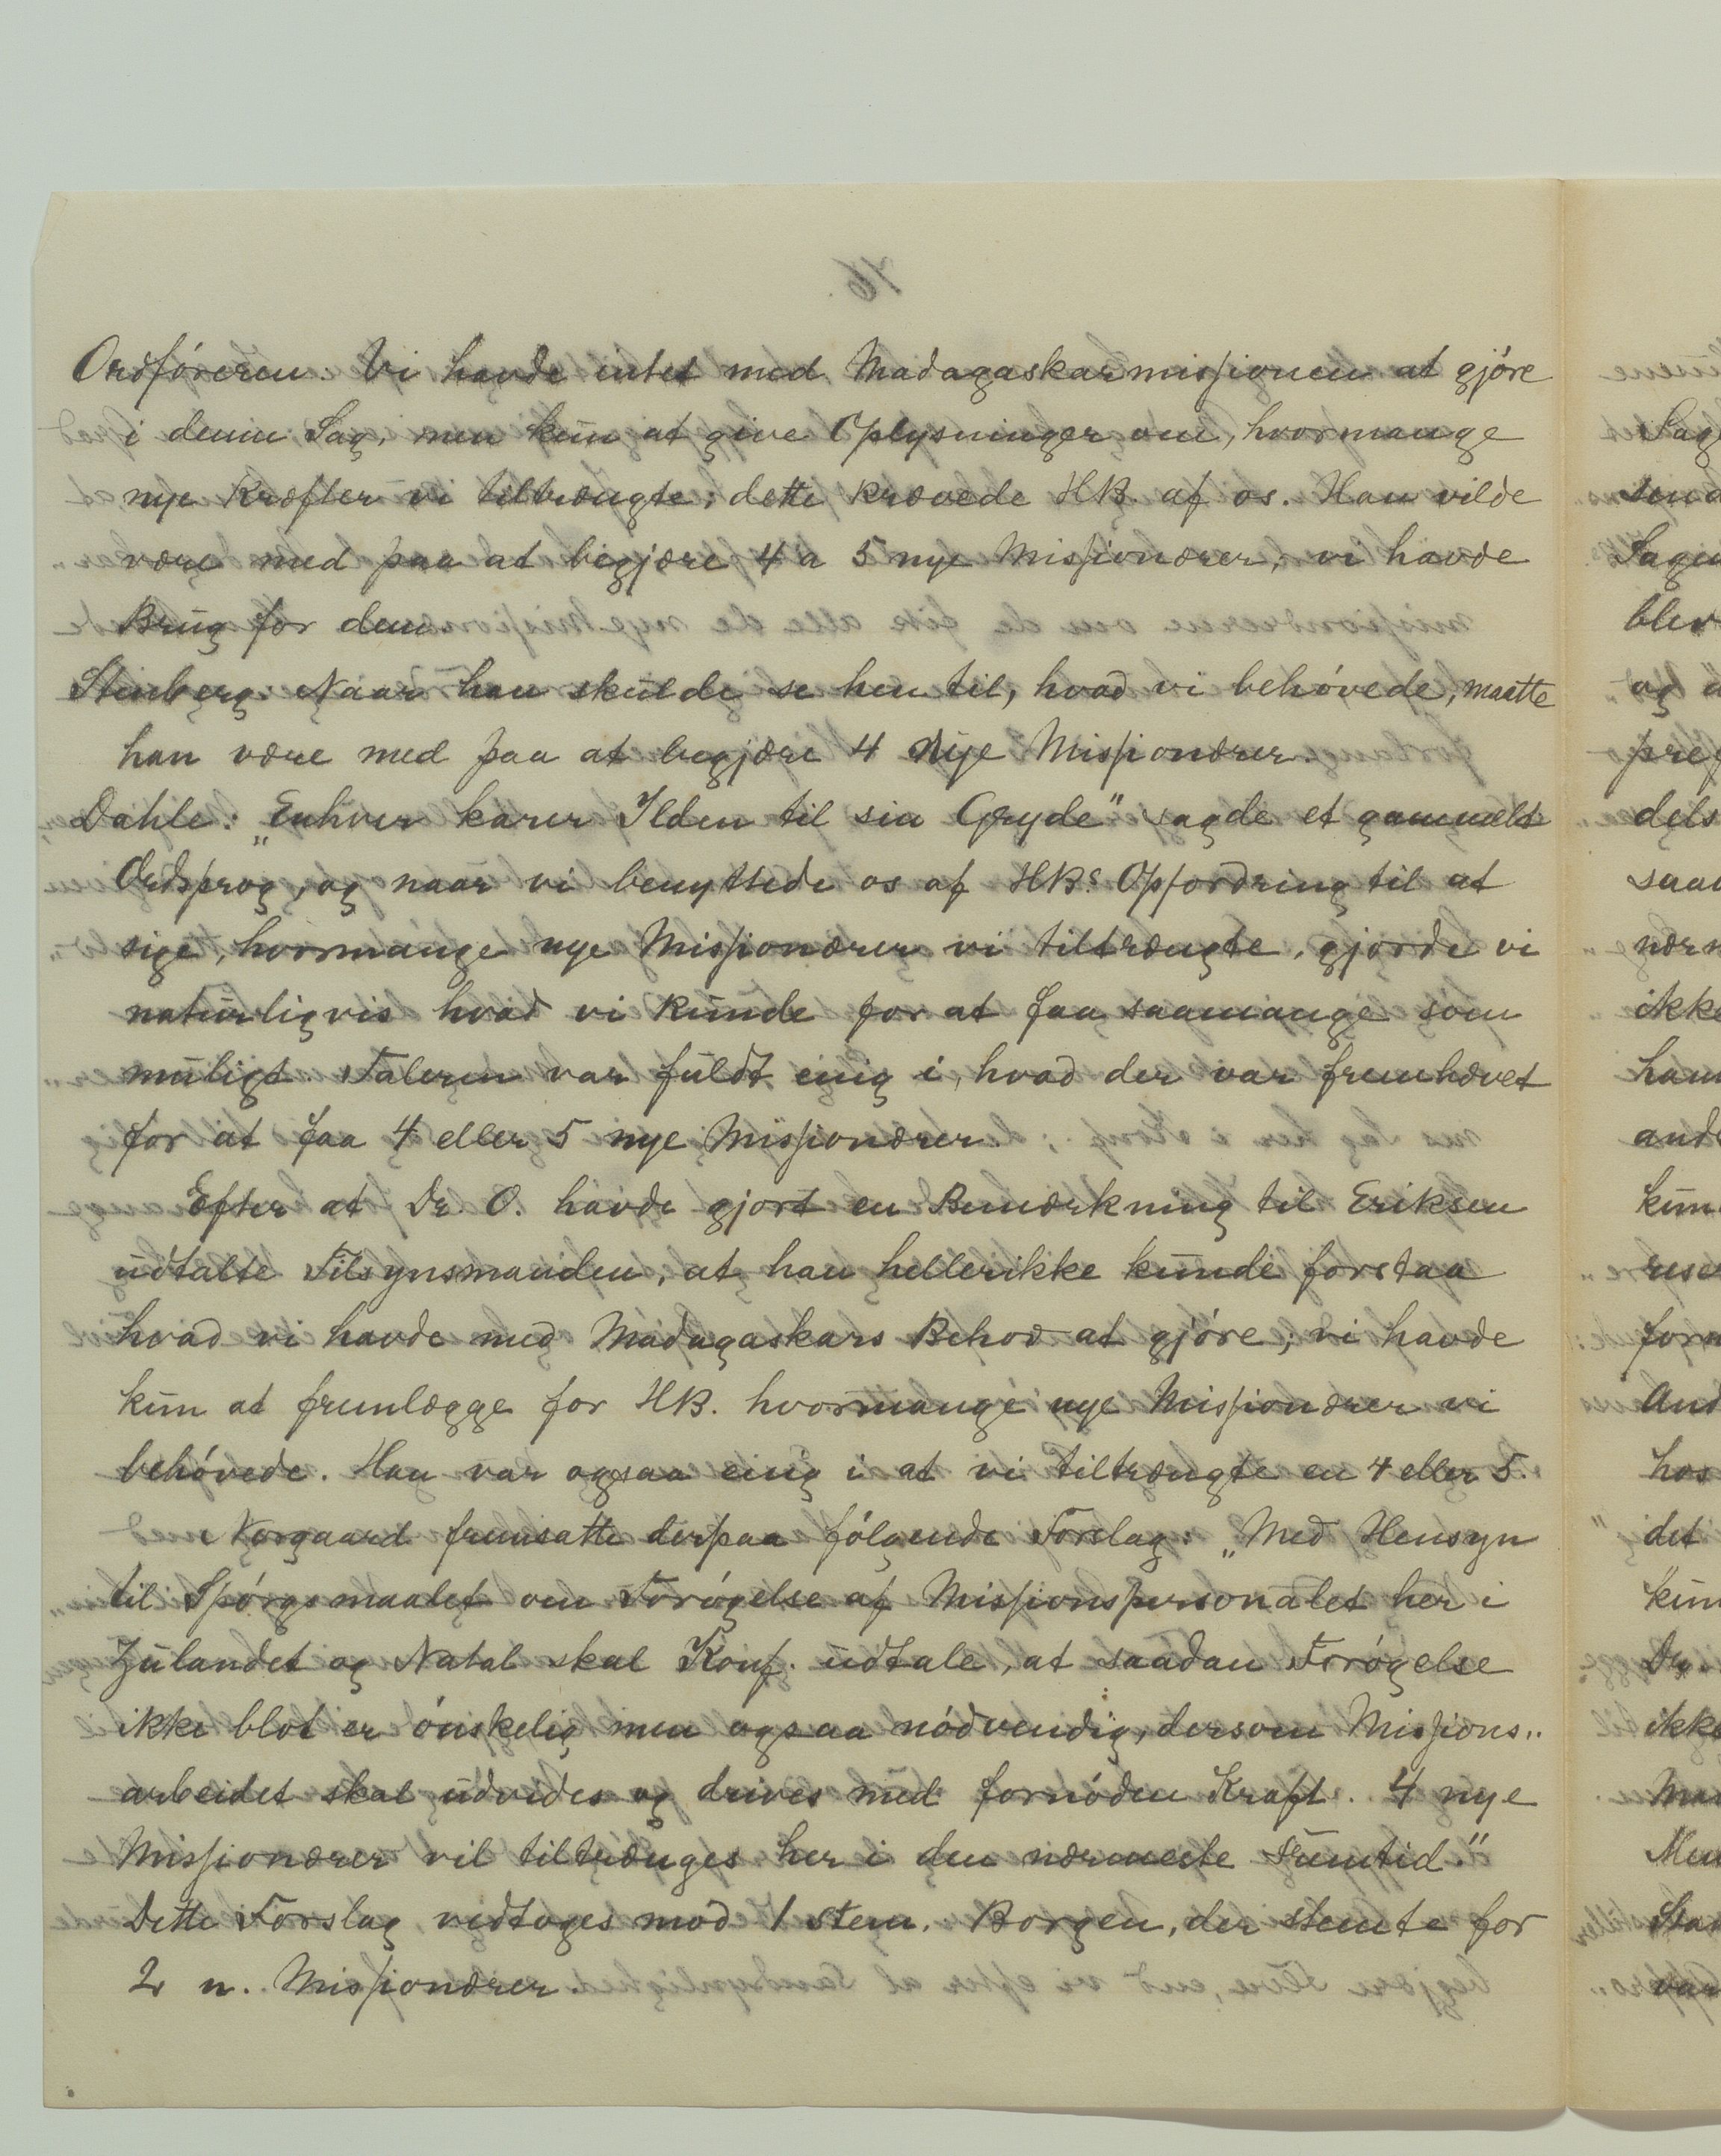 Ordföreren: Vi havde intet med Madagaskarmissionen at gjöre
i denne Sag, men kun at give Oplysninger om, hvormange
nye Kræfter vi tiltrængte; dette krævede HB. af os. Han vilde
være med paa at begjære 4 a 5 nye Missionærer; vi havde
Brug for dem.
Stenberg: Naar han skulde se hen til, hvad vi behövede, maatte
han være med paa at begjære 4 nye Missionærer.
Dahle: „Enhver karer Ilden til sin Gryde" sagde et gammelt
Ordsprog, og naar vi benyttede os af HBs. Opfordring til at
sige, hvormange nye Missionærer vi tiltrængte, gjorde vi
naturligvis hvad vi kunde for at faa saamange som
muligt. Taleren var fuldt enig i, hvad der var fremhævet
for at faa 4 eller 5 nye Missionærer.
Efter at Dr O. havde gjort en Bemærkning til Eriksen
udtalte Tilsynsmanden, at han hellerikke kunde forstaa
hvad vi havde med Madagaskars Behov at gjöre; vi havde
kun at fremlægge for HB. hvormange nye Missionærer vi
behövede. Han var ogsaa enig i at vi tiltrængte en 4 eller 5.
Norgaard fremsatte derpaa fölgende Forslag: „Med Hensyn
til Spörgsmaalet om Forögelse af Missionspersonalet her i
Zululandet og Natal skal Konf. udtale, at saadan Forögelse
ikke blot er önskelig men ogsaa nödvendig, dersom Missions„
arbeidet skal udvides og drives med fornöden Kraft. 4 nye
Missionærer vil tiltrænges her i den nærmeste Fremtid."
Dette Forslag vedtoges mod 1 Stem. Borgen, der stemte for
2 n. Missionærer.